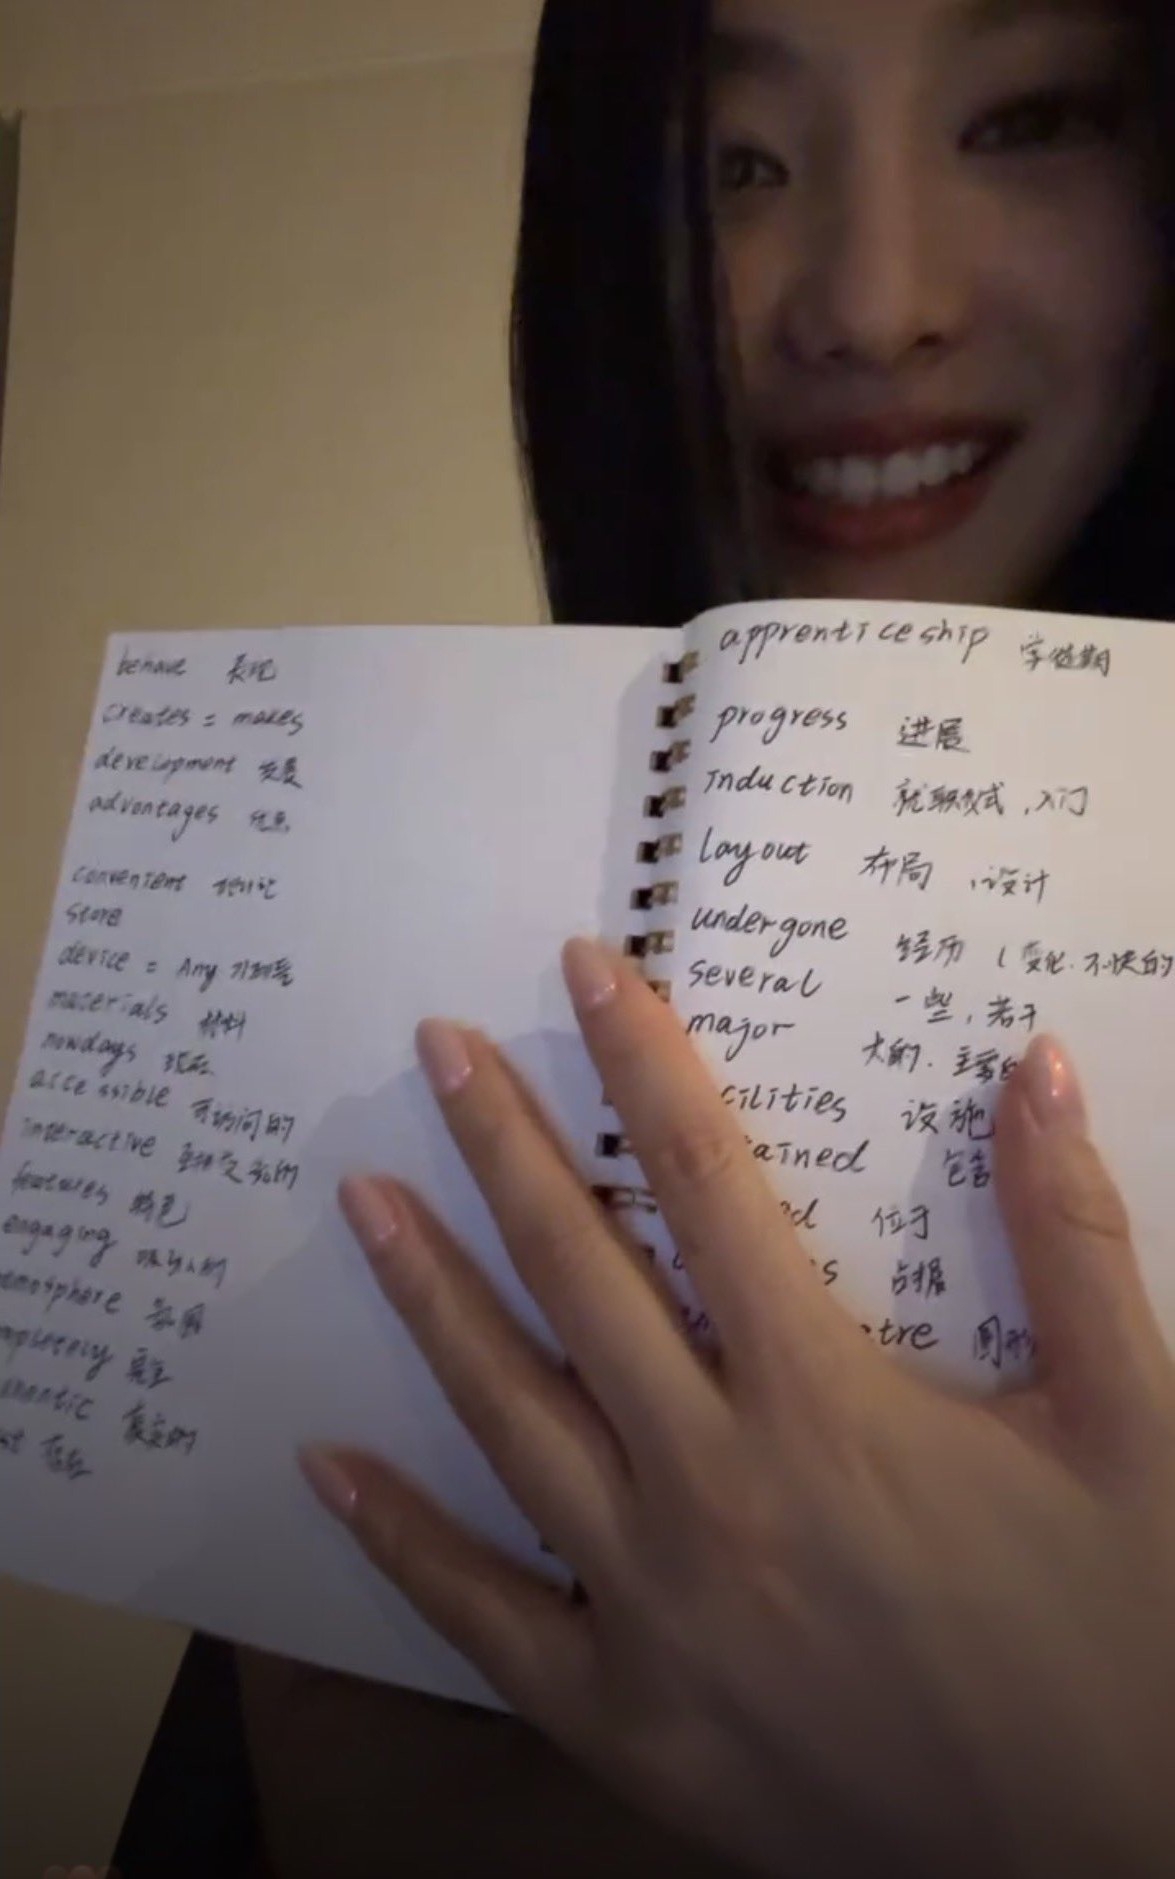 behave 表现
creates = makes
development 发展
advontages 优点
convenient
store
device = Any
materials 材料
nowdays 现在
accessible 可访问的
interactive
features 特色
engaging 吸引人的
氛围
完全

apprenticeship 学徒期
progress 进展
induction 就职仪式，入门
layout 布局，设计
undergone 经历（变化.不快的
several 一些，若干
major 大的.主要的
cilities 设施
ained 包含
ed 位于
s 占据
tre 圆形